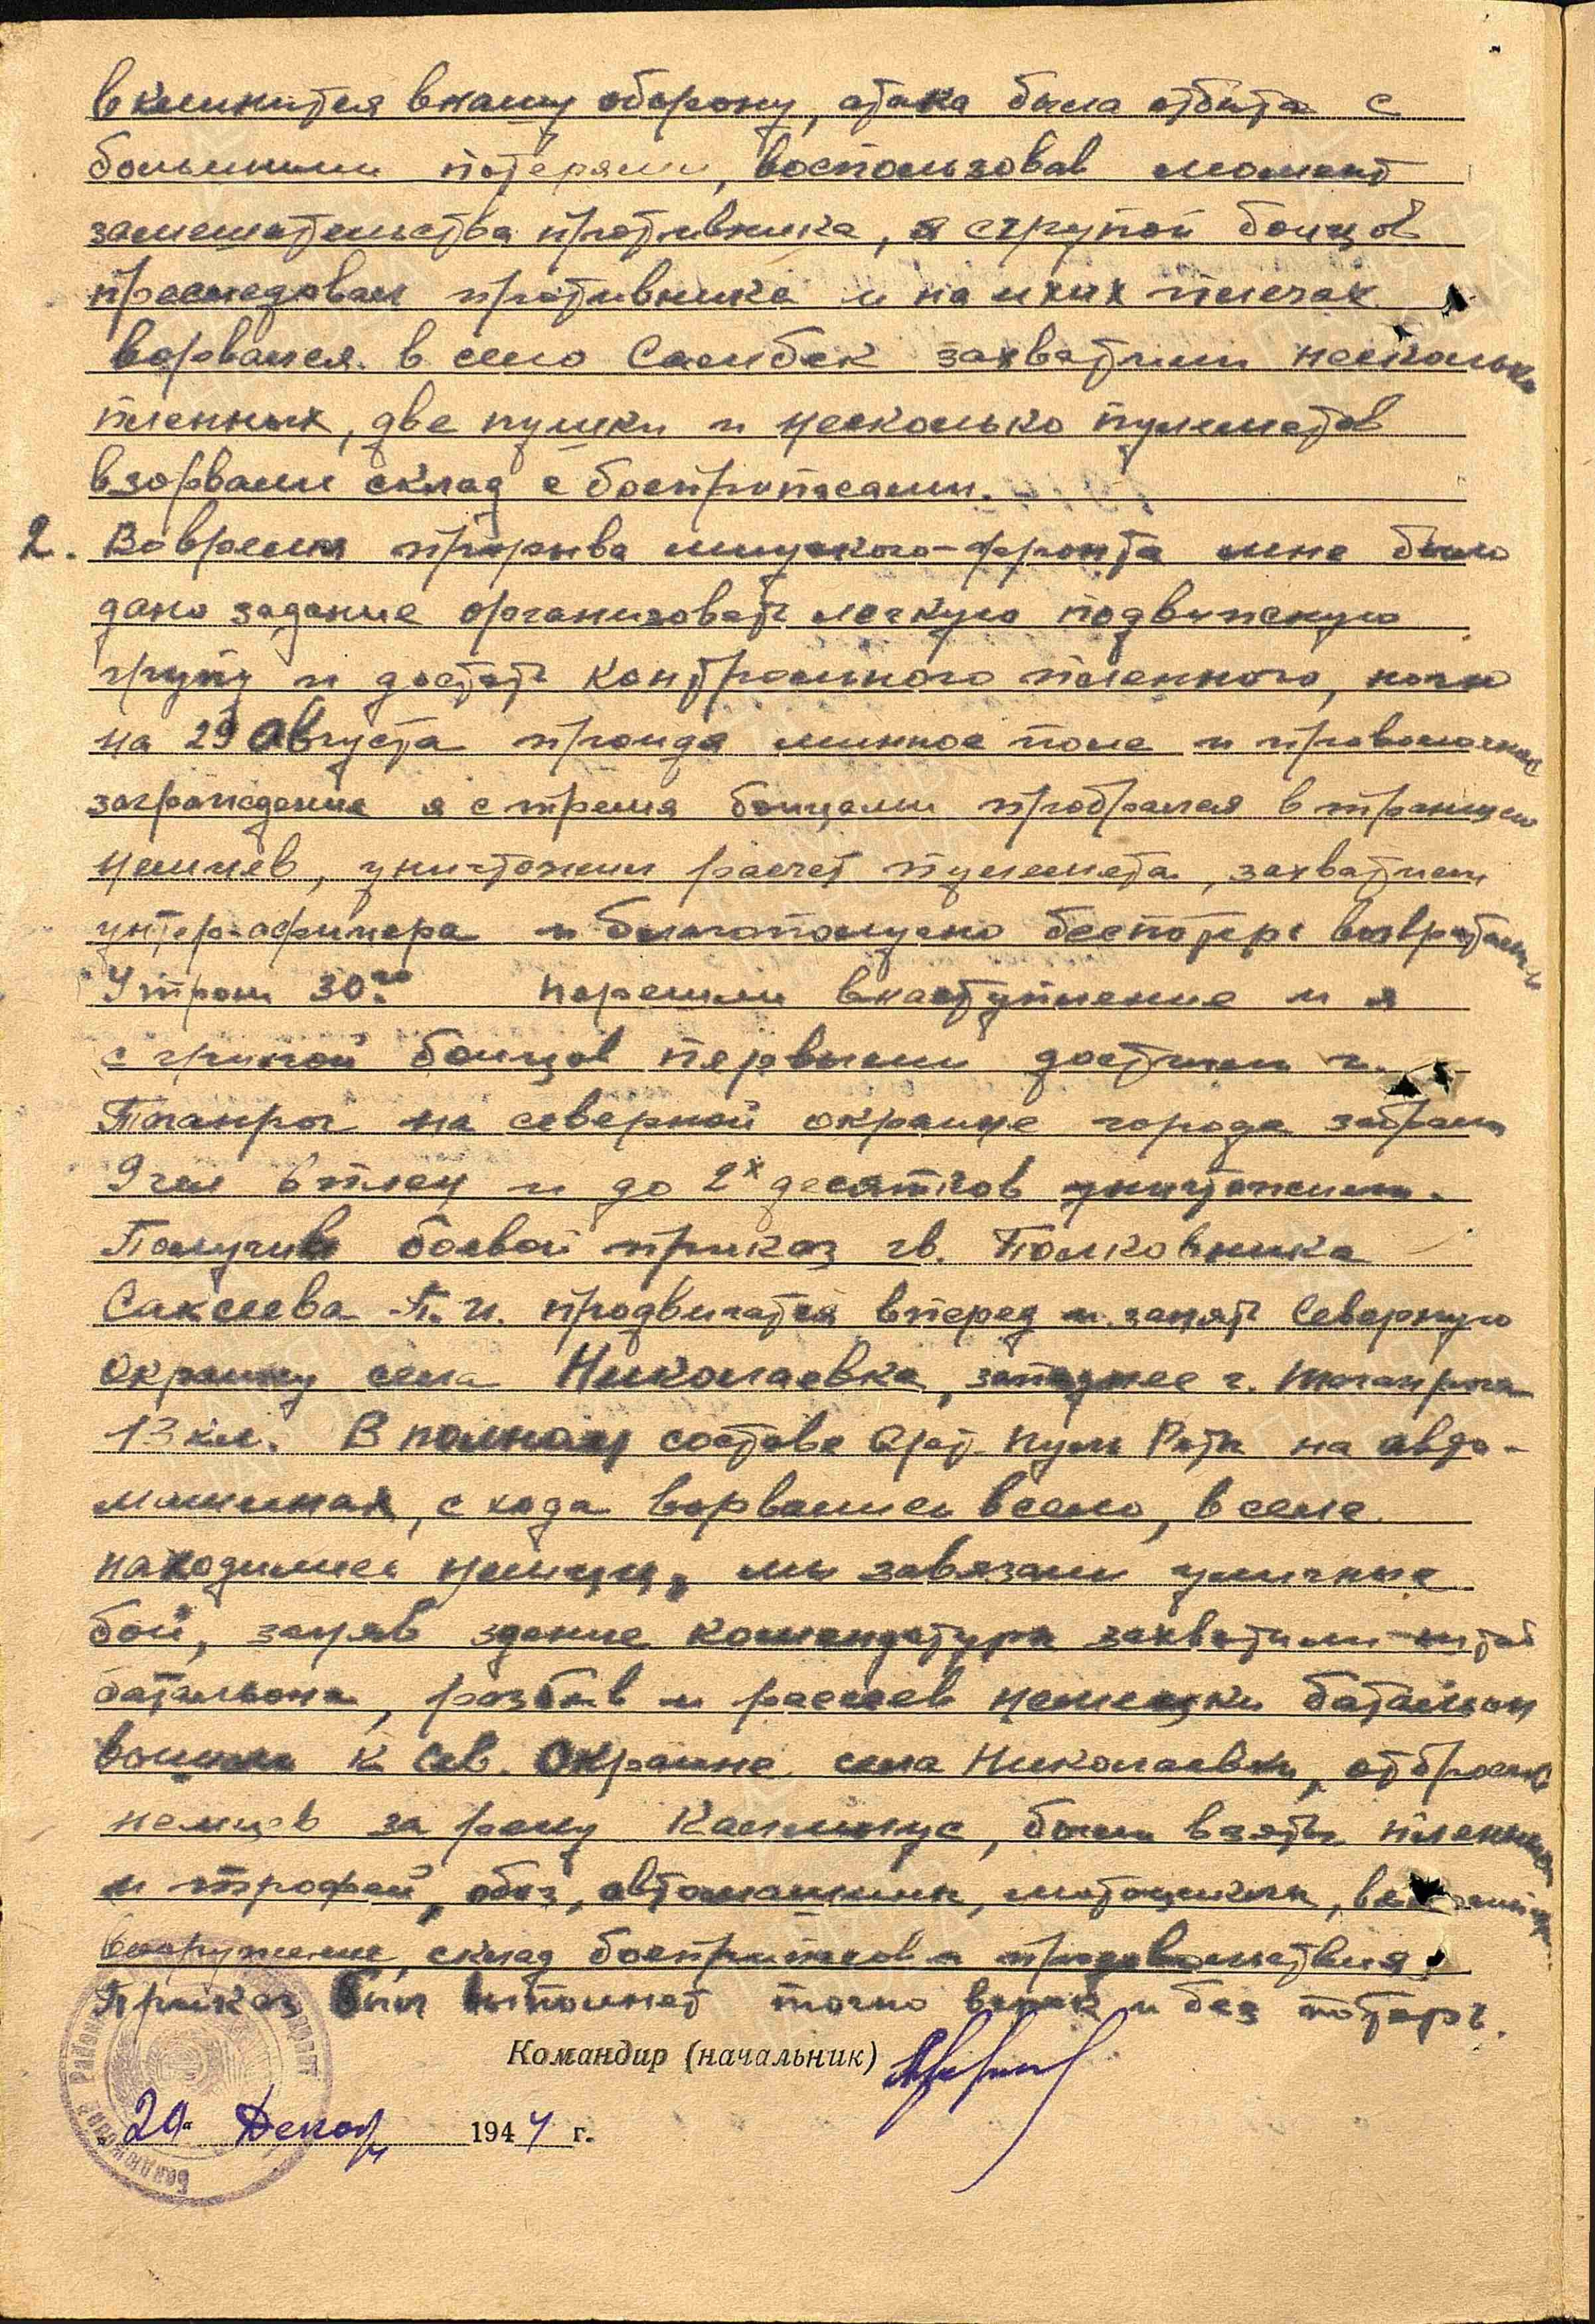 вклинится внашу оборону, атака была отбита с
большими потерями, воспользовав момент
замешательства противника, я сгрупой бойцов
преследовал противника и на ихих плечах
ворвался в село Самбек захватили несколько
пленных, две пушки и несколько пулеметов
взорвали склад с боеприпасами.
2. Вовремя прорыва миуского-фронта мне было
дано задание организовать легкую подвижную
групу и достать контрольного пленного, ночю
на 29 Августа пройдя минное поле и проволочные
заграждения я с тремя бойцами пробрался в траншею
немцев, уничтожили расчет пулемета, захватили
унтер-офицера и благополучно беспотерь возвратились
Утром 30го перешли внаступление и я
с групой бойцов первыми достигли г.
Таганрог на северной окраине города забрали
9 чел в плен и до 2х десятков уничтожили.
Получив боевой приказ гв. Полковника
Саксеева П.И. продвигатся вперед и занять Северную
окраину села Николаевка, западнее г. Таганрога
13 км. В полном составе Арт. пулм Рота на авто-
машинах, с хода ворвались всело, в селе
находились немцы, мы завязали уличные
бой, заняв здание комендатуры захватили штаб
батальона, разбив и рассеев немецки батальон
вышли к сев. Окраине села Николаевки, отбросив
немцев за реку Калмиус, были взяты пленные
и трофей, обоз, автомашины, мотоциклы,
вооружение, склад боеприпасов и продовольствия.
Приказ был выполнен точно в срок и без потерь.
Командир (начальник)
20 Декаб 1944 г.